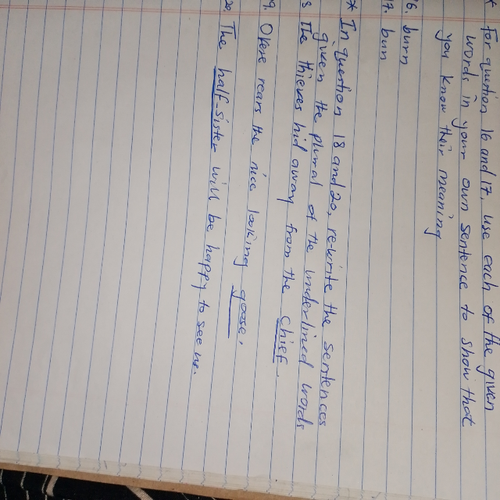 * For qustion 16 and 17, use each of the given
words in your own sentence to show that
you know their meaning
16. burn
17. bun
* In question 18 and 20, re-write the sentences
given the plural of the underlined words
8 The thieves hid away from the chief.
9. Okese rears the nice looking goose.
20 The half-sister will be happy to see us.